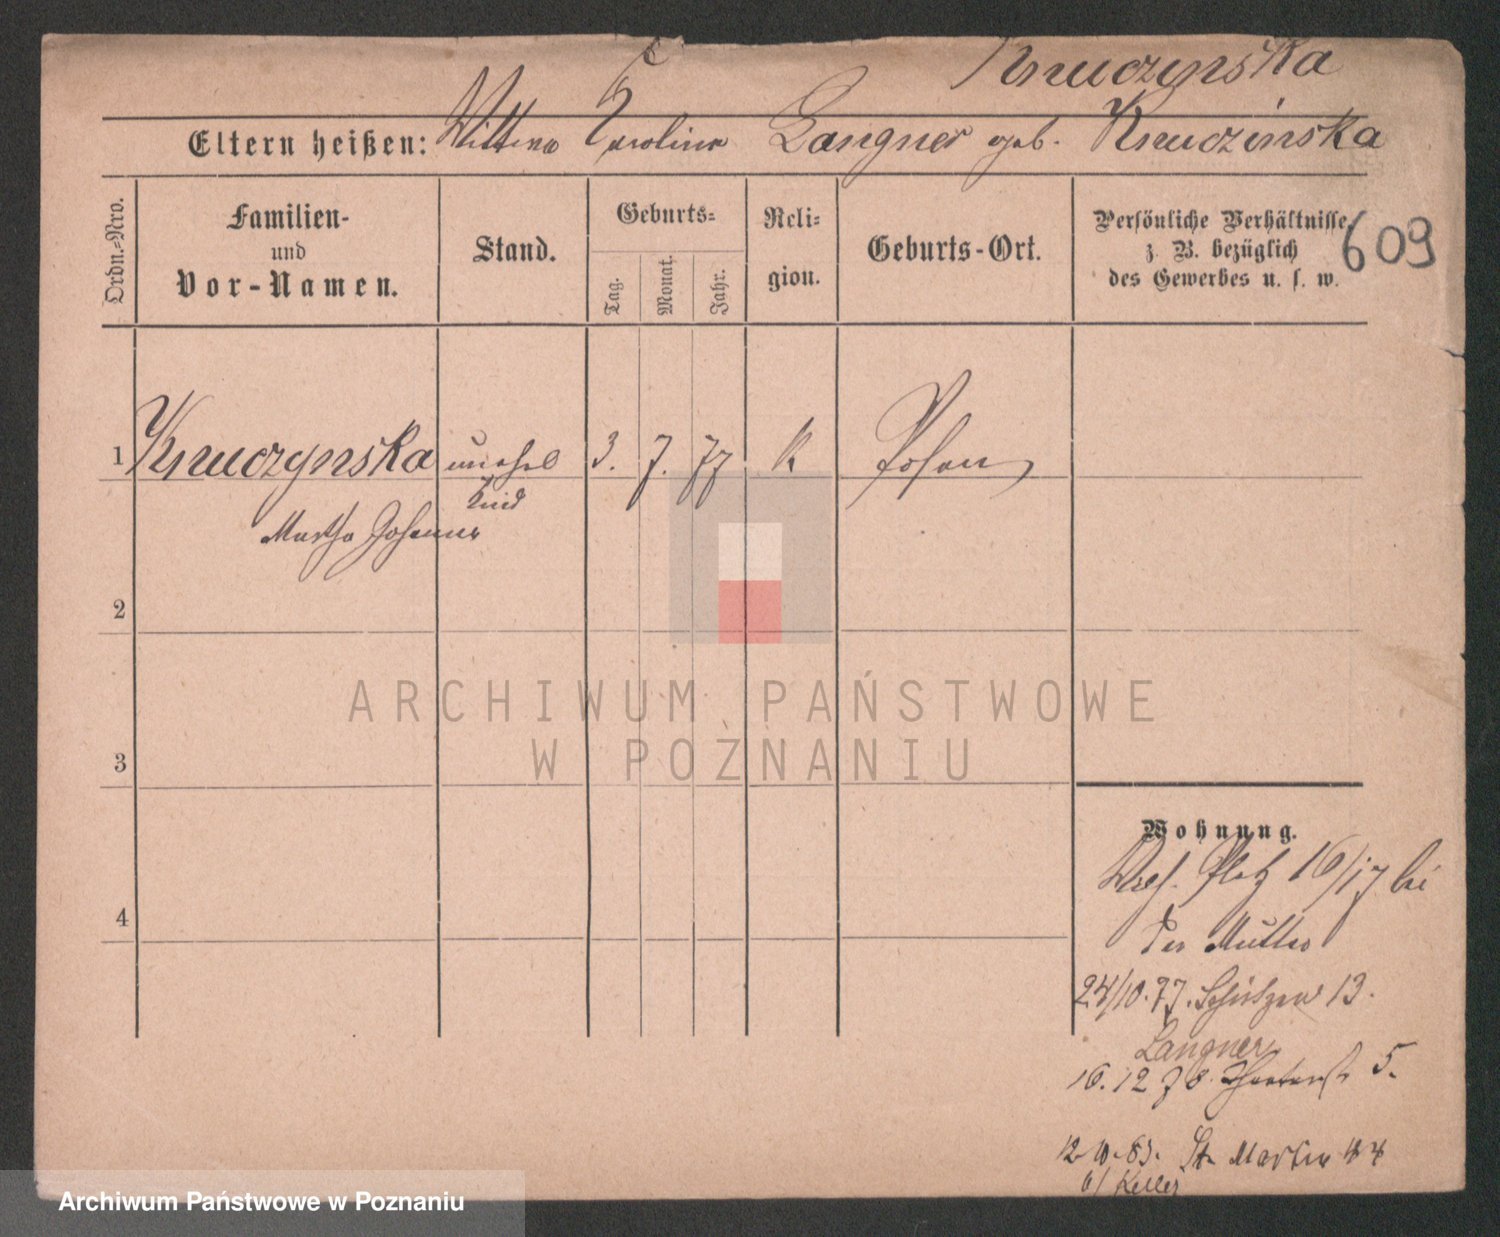 Kruczynska
Eltern heißen: Wittwe Caroline Langner geb. Kruczinska
Ordn.-Nro.
Familien-
und
Vor-Namen.
Stand.
Geburts-
Tag.
Monat.
Jahr.
Reli-
gion.
Geburts-Ort.
Persönliche Verhältnisse
z. B. bezüglich
des Gewerbes u. s. w.
609
1 Kruczynska unehel 3. 7. 77 K Posen
Kind
Martha Johanna
2
3
4
Wohnung.
Wres. Platz 16/17 bei
der Mutter
24/10.77. Schützen 13.
Langner
16.12 78. Theaterst 5.
12.10.83. St. Martin 44
b/ Keller
ARCHIWUM PAŃSTWOWE
W POZNANIU
Archiwum Państwowe w Poznaniu